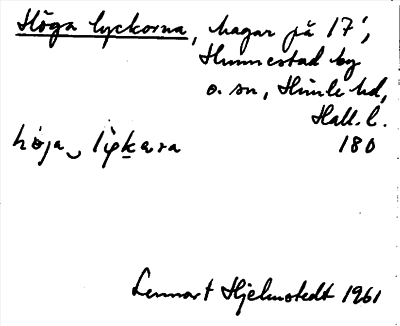 Höga lyckorna, hagar på 17¹,
Hunnestad by
o. sn, Himle hd,
Hall. l.
180
höja‿ lykara
Lennart Hjelmstedt 1961